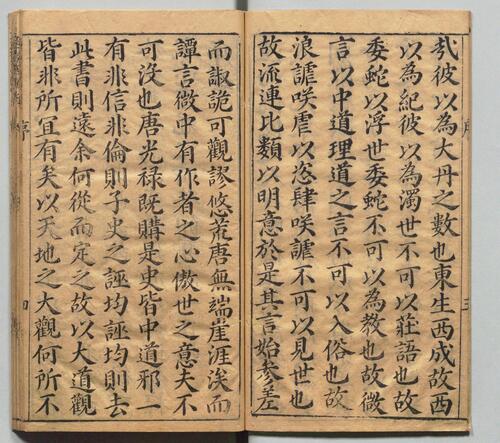 序
三
㢤彼以為大丹之數也東生西成故西
以為紀彼以為濁世不可以莊語也故
委蛇以浮世委蛇不可以為教也故微
言以中道理道之言不可以入俗也故
浪謔咲虐以恣肆咲謔不可以見世也
故流連比類以明意於是其言始參差
而諔詭可觀謬悠荒唐無端崖涯涘而
譚言微中有作者之心傲世之意夫不
可沒也唐光祿既購是史皆中道邪一
有非信非倫則子史之誣均誣均則去
此書則遠余何從而定之故以大道觀
皆非所宜有矣以天地之大觀何所不
序
四